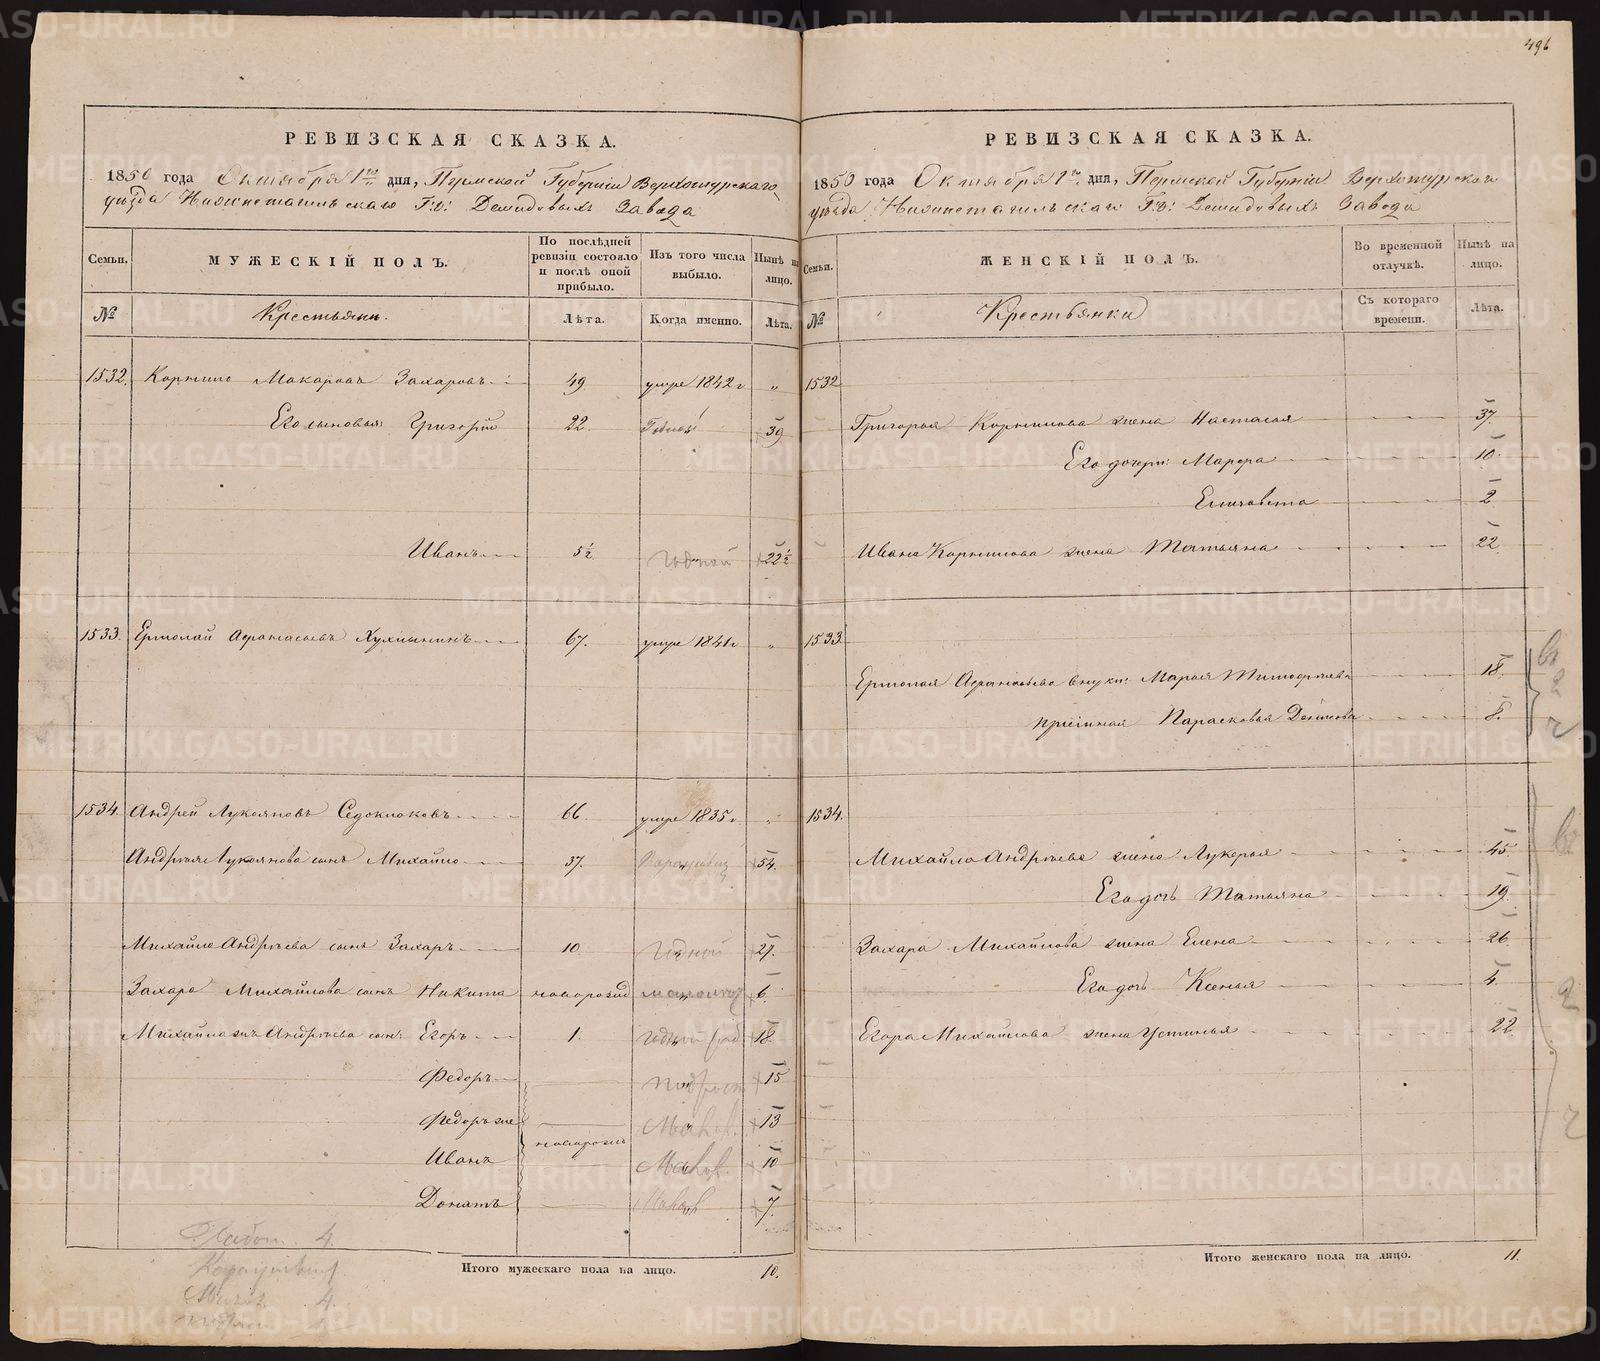 496
РЕВИЗСКАЯ СКАЗКА.
1850 года Октября 1го дня, Пермской Губернiи Верхотурскаго
уѣзда Нижнетагильскаго Г.д: Демидовыхъ Завода
Семьи.
МУЖЕСКIЙ ПОЛЪ.
По послѣдней ревизiи состояло и послѣ оной прибыло.
Изъ того числа выбыло.
Нынѣ на лицо.
№
Крестьяне.
Лѣта.
Когда именно.
Лѣта.
1532. Макаровъ Захаровъ 49. умре 1842 г „
Его сыновья: Григорiй 22. 39
Иванъ 5½ годной 22½
1533. Ермолай Афанасьевъ 67. умре 1841 г „
1534. Андрей Лукояновъ 66 умре 1835 г „
Андрея Лукоянова сынъ Михайло 37. 54.
Михайло Андрѣева сынъ Захаръ 10. годной 27.
Захара Михайлова сынъ Никита новорожд 6.
Михайла жъ Андрѣева сынъ Егоръ 1. годной 18.
Федоръ 15
Федоръ же 13
новорож
Иванъ 10
Донатъ 7.
4.
4
Итого мужескаго пола на лицо. 10.
РЕВИЗСКАЯ СКАЗКА.
1850 года Октября 1го дня, Пермской Губернiи Верхотурскаго
уѣзда Нижнетагильскаго Г.д: Демидовыхъ Завода
Семьи.
ЖЕНСКIЙ ПОЛЪ.
Во временной отлучкѣ.
Нынѣ на лицо.
№
Крестьянки
Съ котораго времени.
Лѣта.
1532
Григорья Корнилова жена Настасья 37.
Его дочери: Марфа 10.
Елизавета 2
Ивана Корнилова жена Татьяна 22
1533.
Ермолая Афанасьева внуки: Марья Тимофѣева 18.
Парасковья 8.
1534.
Михайла Андрѣева жена Лукерья 45
Его дочь Татьяна 19.
Захара Михайлова жена Елена 26.
Его дочь Ксенья 4.
Егора Михайлова жена Устинья 22
Итого женскаго пола на лицо. 11.
METRIKI.GASO-URAL.RU